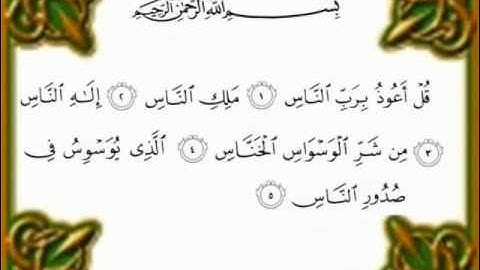 بِسْمِ اللَّهِ الرَّحْمَٰنِ الرَّحِيمِ
قُلْ أَعُوذُ بِرَبِّ النَّاسِ ١ مَلِكِ النَّاسِ ٢ إِلَٰهِ النَّاسِ
٣ مِن شَرِّ الْوَسْوَاسِ الْخَنَّاسِ ٤ الَّذِي يُوَسْوِسُ فِي
صُدُورِ النَّاسِ ٥